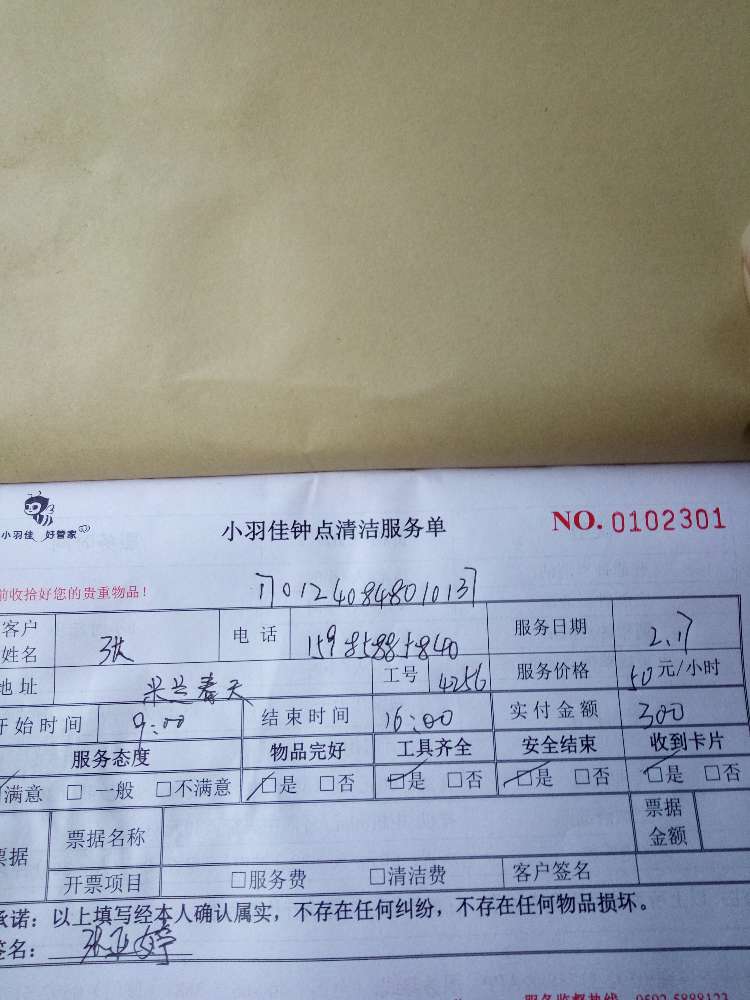 小羽佳 好管家
小羽佳钟点清洁服务单
NO. 0102301
前收拾好您的贵重物品!
17012408480101317
客户姓名 张 电话 15985885840 服务日期 2.17
地址 工号 4256 服务价格 50元/小时
开始时间 9:00 结束时间 16:00 实付金额 300
服务态度 物品完好 工具齐全 安全结束 收到卡片
满意 □ 一般 □不满意 □是 □否 □是 □否 □是 □否 □是 □否
票据 票据名称 票据金额
开票项目 □服务费 □清洁费 客户签名
承诺:以上填写经本人确认属实,不存在任何纠纷,不存在任何物品损坏。
签名:张亚婷
服务监督热线 0592-5888123